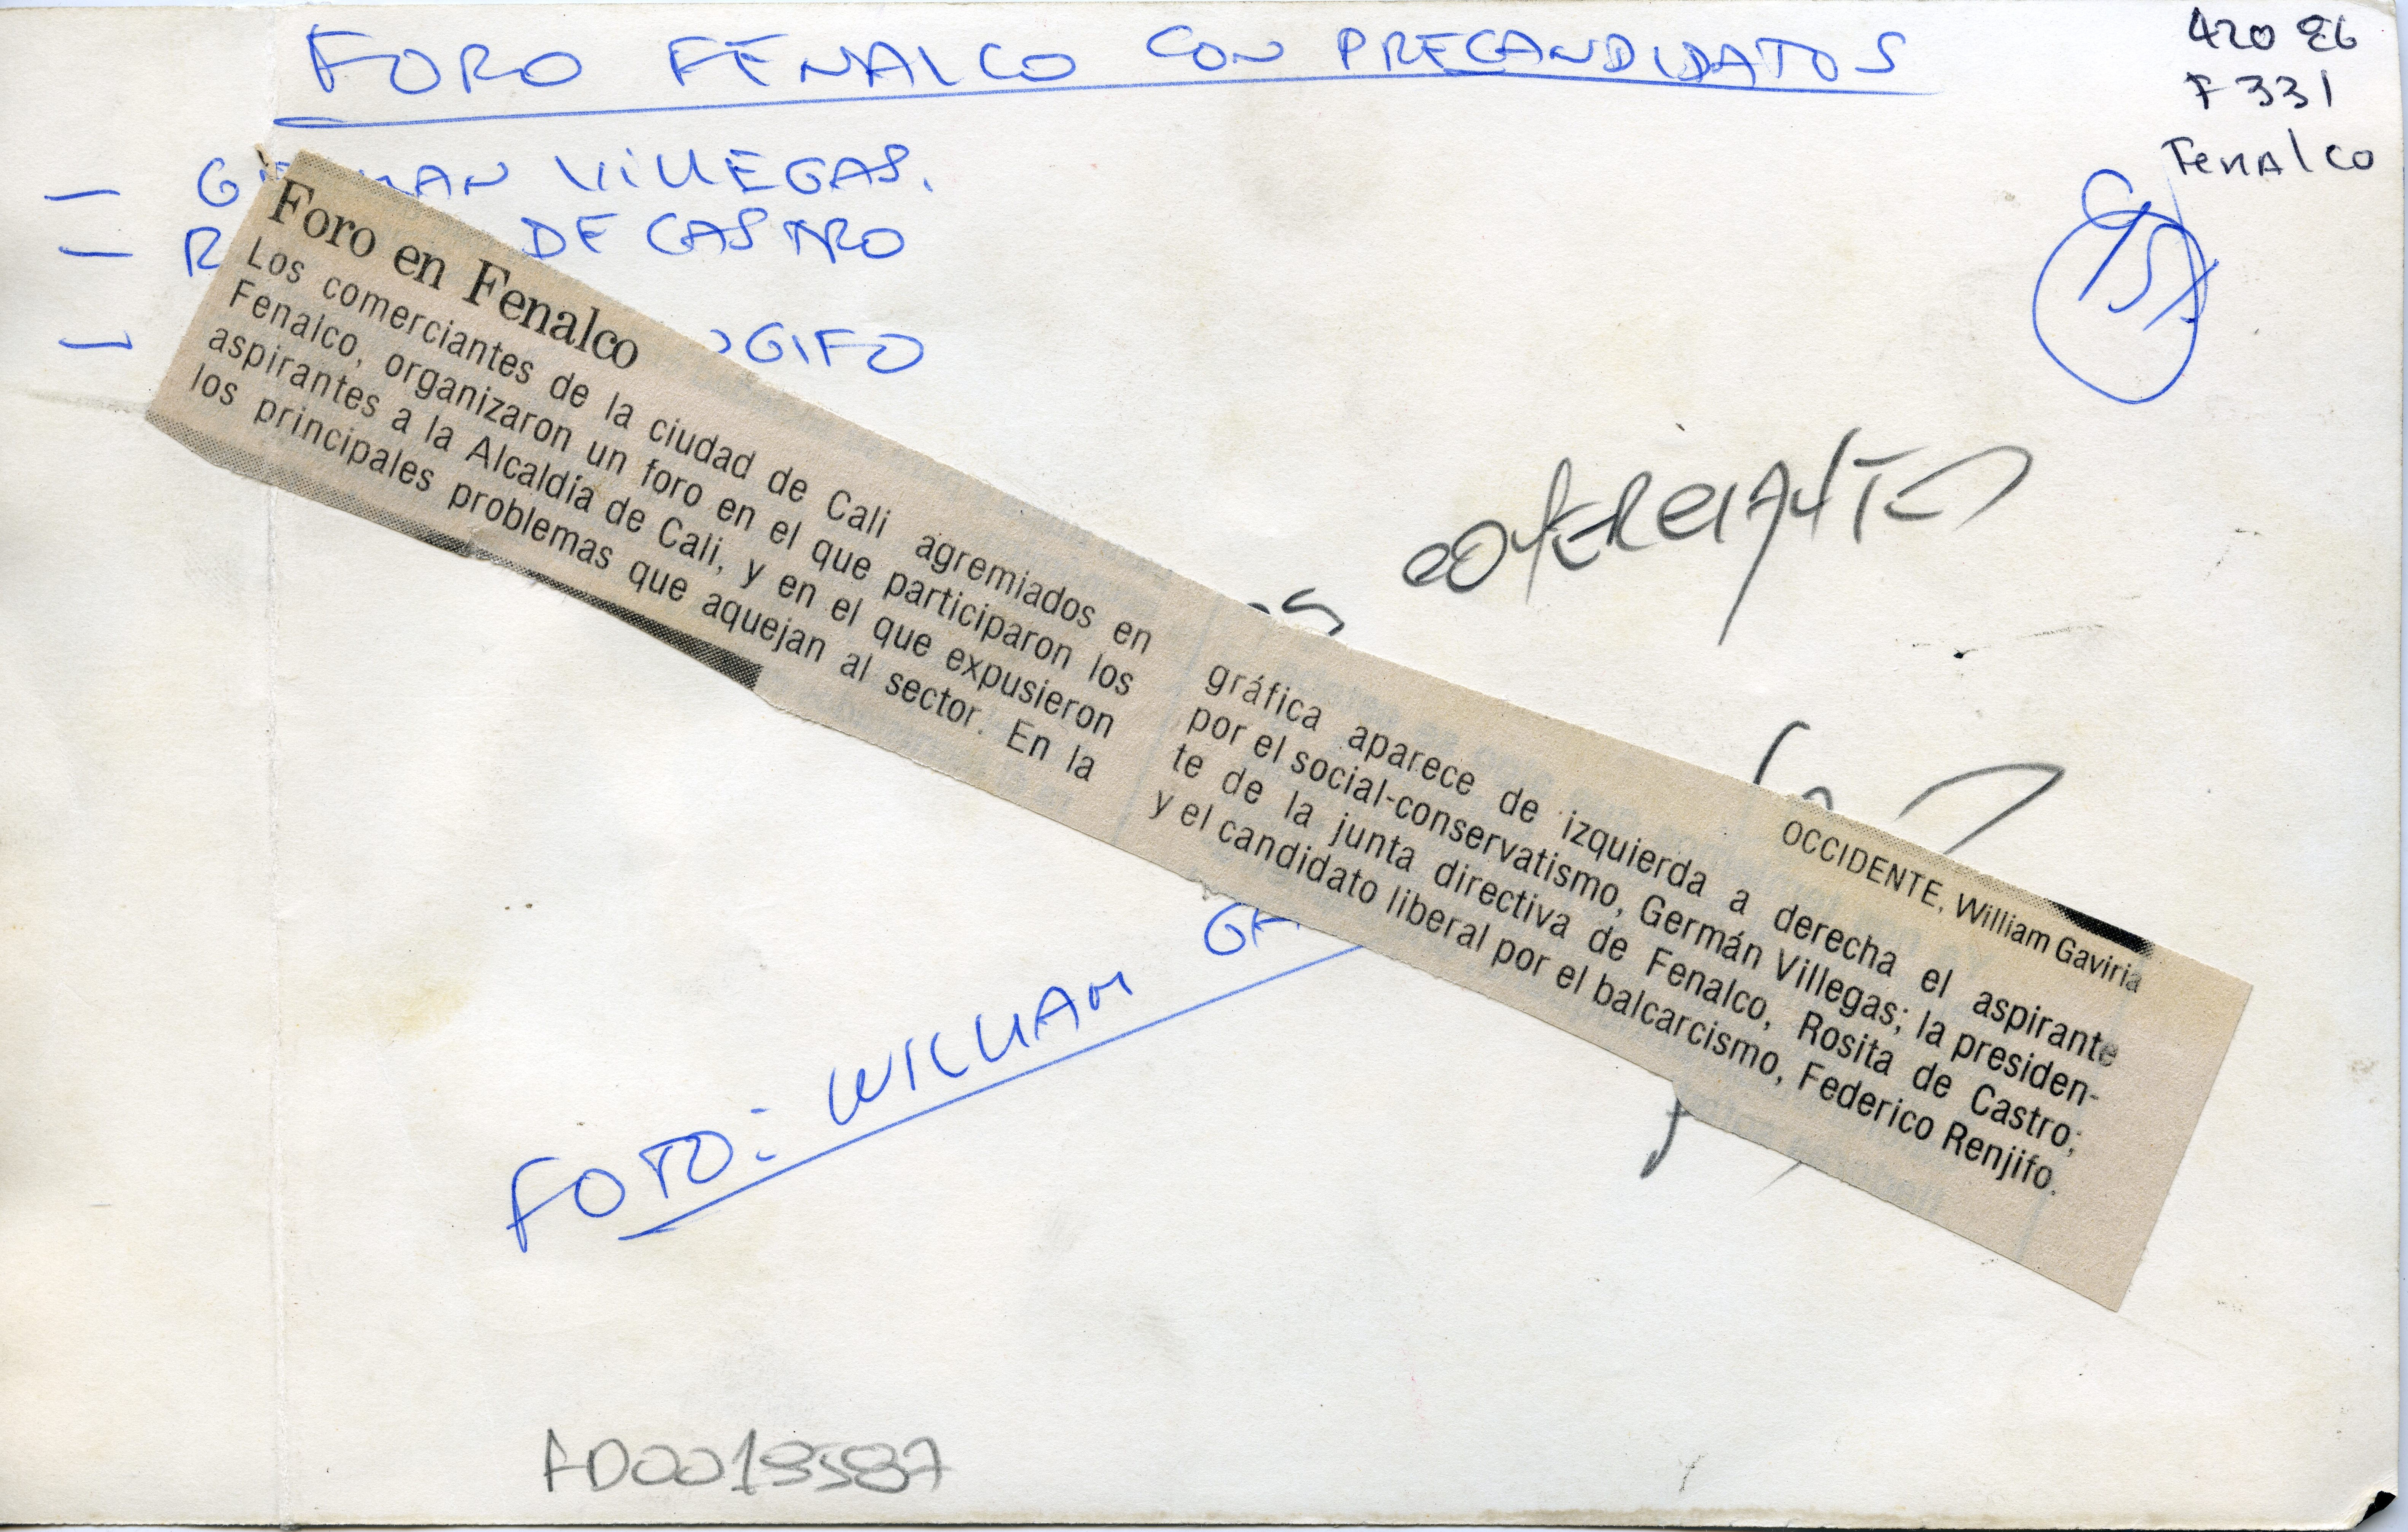 FORO FENALCO CON PRECANDIDATOS
420 86
F 331
Fenalco
— VILLEGAS.
— DE CASTRO
—
Foro en Fenalco
Los comerciantes de la ciudad de Cali agremiados en
Fenalco, organizaron un foro en el que participaron los
aspirantes a la Alcaldía de Cali, y en el que expusieron
los principales problemas que aquejan al sector. En la
OCCIDENTE, William Gaviria
gráfica aparece de izquierda a derecha el aspirante
por el social-conservatismo, Germán Villegas; la presiden-
te de la junta directiva de Fenalco, Rosita de Castro;
y el candidato liberal por el balcarcismo, Federico Renjifo.
FOTO: WILLIAM GA